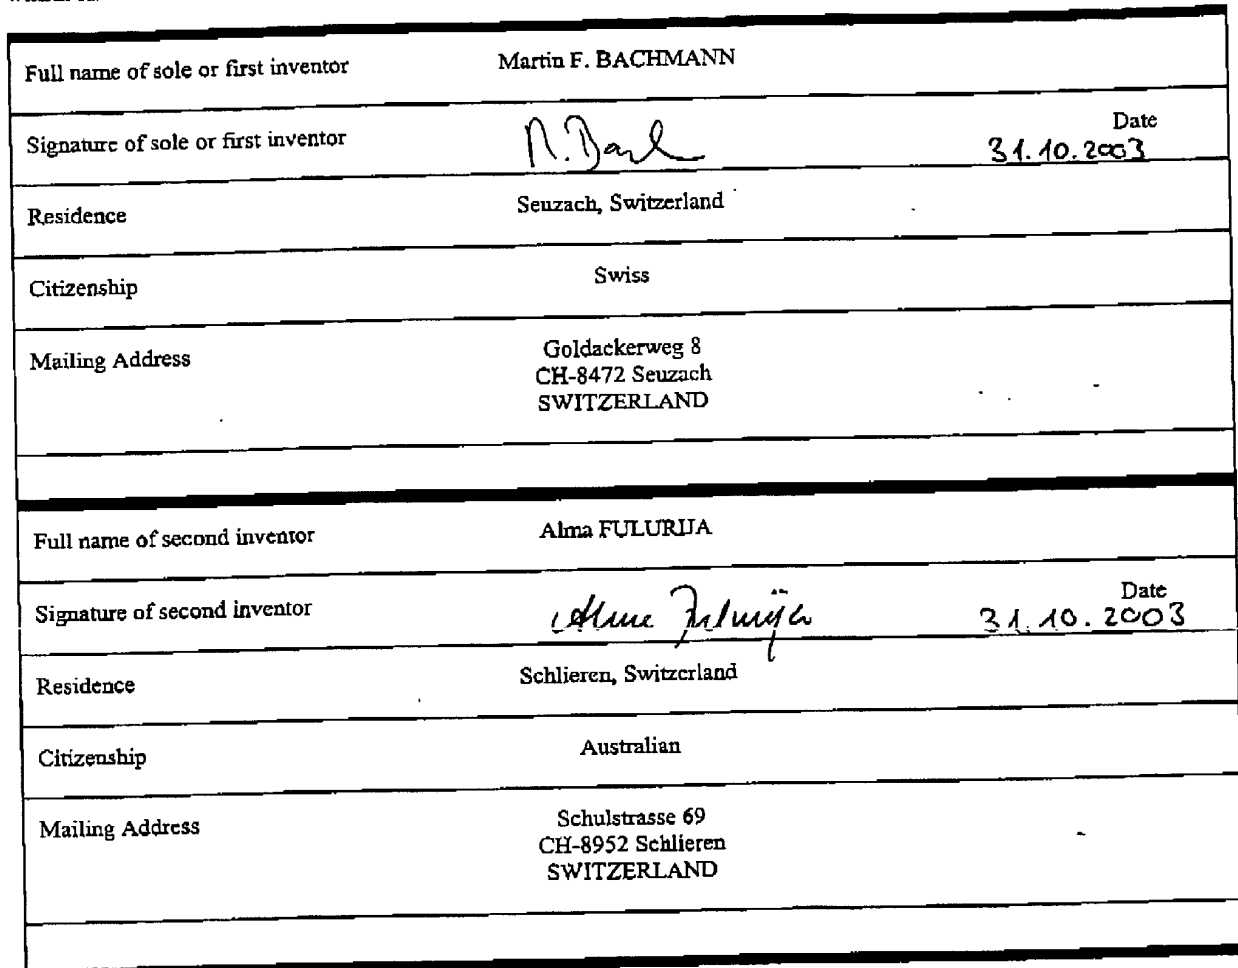 Full name of sole or first inventor Martin F. BACHMANN
Signature of sole or first inventor Date
31.10.2003
Residence Seuzach, Switzerland
Citizenship Swiss
Mailing Address Goldackerweg 8
CH-8472 Seuzach
SWITZERLAND
Full name of second inventor Alma FULURIJA
Signature of second inventor Alma Fulurija Date
31.10.2003
Residence Schlieren, Switzerland
Citizenship Australian
Mailing Address Schulstrasse 69
CH-8952 Schlieren
SWITZERLAND